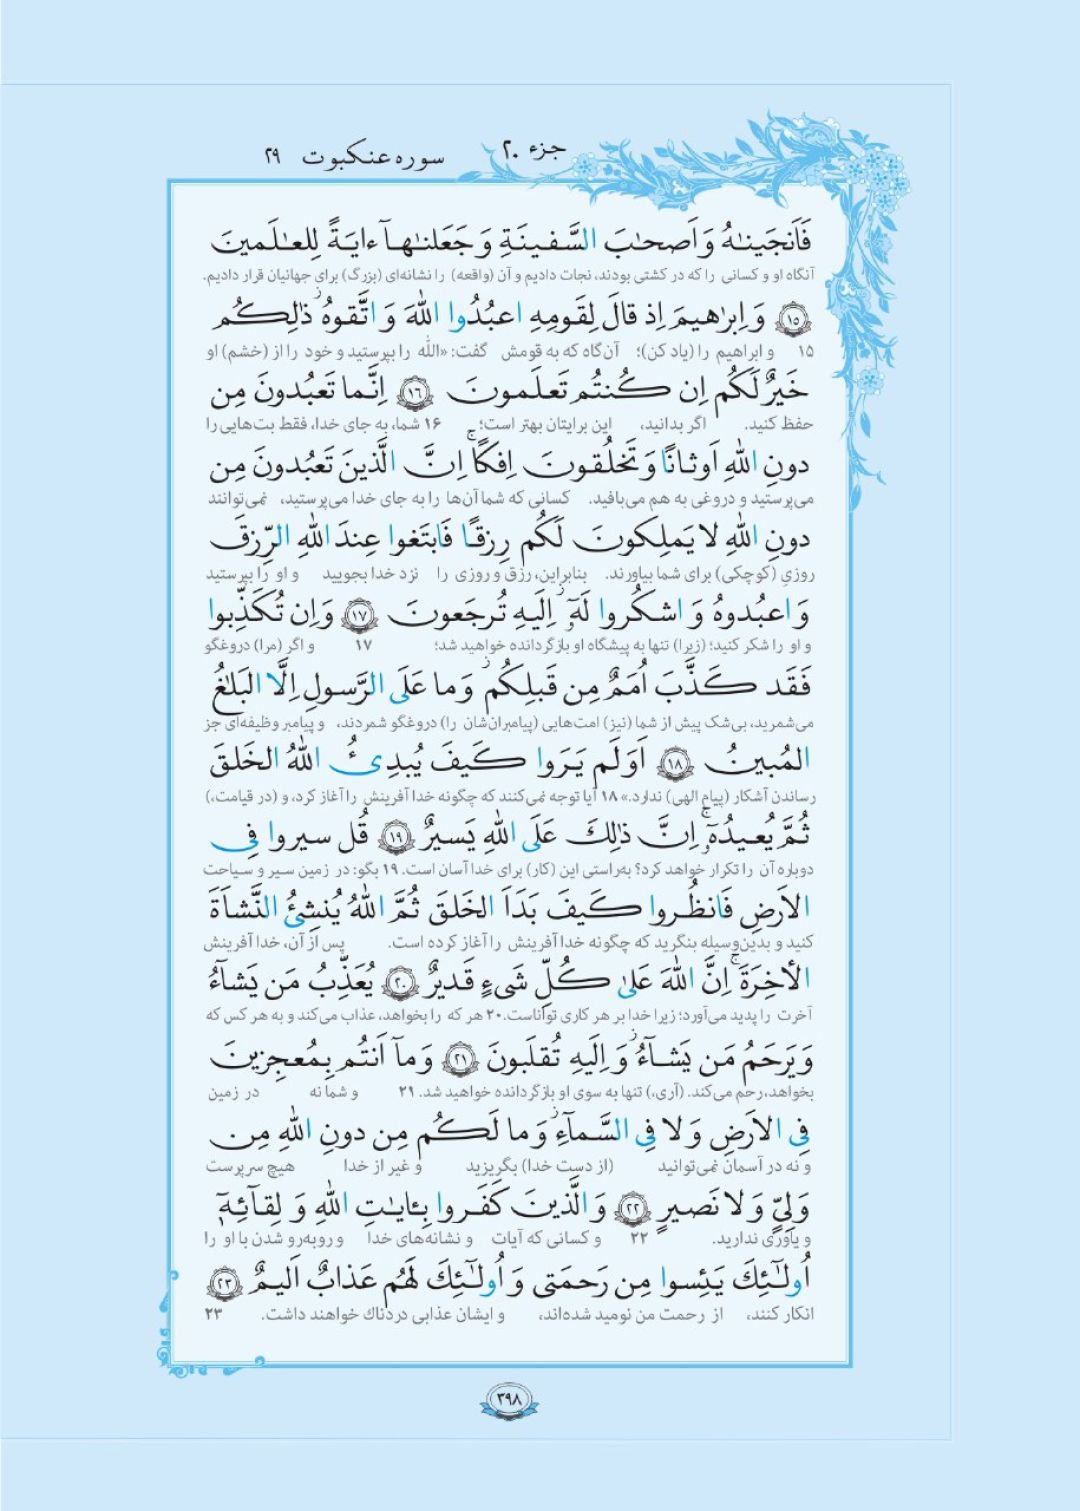 جزء ۲۰
سوره عنکبوت ۲۹
فَاَنجَينٰهُ وَ اَصحٰبَ السَّفينَةِ وَ جَعَلنٰهآ ءايَةً لِلعٰلَمينَ
آنگاه او و کسانی را که در کشتی بودند، نجات دادیم و آن (واقعه) را نشانه‌ای (بزرگ) برای جهانیان قرار دادیم.
۱۵ وَ اِبرٰهيمَ اِذ قالَ لِقَومِهِ اعبُدُوا اللّٰهَ وَ اتَّقوهُ ۖ ذٰلِكُم
۱۵ و ابراهیم را (یاد کن)؛ آن‌گاه که به قومش گفت: «اللّٰه را بپرستید و خود را از (خشم) او
خَيرٌ لَكُم اِن كُنتُم تَعلَمونَ ۱۶ اِنَّما تَعبُدونَ مِن
حفظ کنید. اگر بدانید، این برایتان بهتر است؛ ۱۶ شما، به جای خدا، فقط بت‌هایی را
دونِ اللّٰهِ اَوثانًا وَ تَخلُقونَ اِفكًا ۚ اِنَّ الَّذينَ تَعبُدونَ مِن
می‌پرستید و دروغی به هم می‌بافید. کسانی که شما آن‌ها را به جای خدا می‌پرستید، نمی‌توانند
دونِ اللّٰهِ لا يَملِكونَ لَكُم رِزقًا فَابتَغوا عِندَ اللّٰهِ الرِّزقَ
روزیِ (کوچکی) برای شما بیاورند. بنابراین، رزق و روزی را نزد خدا بجویید و او را بپرستید
وَ اعبُدوهُ وَ اشكُروا لَهٗٓ ۖ اِلَيهِ تُرجَعونَ ۱۷ وَ اِن تُكَذِّبوا
و او را شکر کنید؛ (زیرا) تنها به پیشگاه او بازگردانده خواهید شد؛ ۱۷ و اگر (مرا) دروغگو
فَقَد كَذَّبَ اُمَمٌ مِن قَبلِكُم ۖ وَ ما عَلَى الرَّسولِ اِلَّا البَلاغُ
می‌شمرید، بی‌شک پیش از شما (نیز) امت‌هایی (پیامبران‌شان را) دروغگو شمردند، و پیامبر وظیفه‌ای جز
المُبينُ ۱۸ اَوَ لَم يَرَوا كَيفَ يُبدِئُ اللّٰهُ الخَلقَ
رساندن آشکار (پیام الهی) ندارد.» ۱۸ آیا توجه نمی‌کنند که چگونه خدا آفرینش را آغاز کرد، و (در قیامت،)
ثُمَّ يُعيدُهٗٓ ۚ اِنَّ ذٰلِكَ عَلَى اللّٰهِ يَسيرٌ ۱۹ قُل سيروا فِى
دوباره آن را تکرار خواهد کرد؟ به‌راستی این (کار) برای خدا آسان است. ۱۹ بگو: در زمین سیر و سیاحت
الاَرضِ فَانظُروا كَيفَ بَدَاَ الخَلقَ ثُمَّ اللّٰهُ يُنشِئُ النَّشاَةَ
کنید و بدین‌وسیله بنگرید که چگونه خدا آفرینش را آغاز کرده است. پس از آن، خدا آفرینش
الأخِرَةَ ۚ اِنَّ اللّٰهَ عَلىٰ كُلِّ شَىءٍ قَديرٌ ۲۰ يُعَذِّبُ مَن يَشآءُ
آخرت را پدید می‌آورد؛ زیرا خدا بر هر کاری تواناست. ۲۰ هر که را بخواهد، عذاب می‌کند و به هر کس که
وَ يَرحَمُ مَن يَشآءُ ۖ وَ اِلَيهِ تُقلَبونَ ۲۱ وَ مآ اَنتُم بِمُعجِزينَ
بخواهد، رحم می‌کند. (آری،) تنها به سوی او بازگردانده خواهید شد. ۲۱ و شما نه در زمین
فِى الاَرضِ وَ لا فِى السَّمآءِ ۖ وَ ما لَكُم مِن دونِ اللّٰهِ مِن
و نه در آسمان نمی‌توانید (از دست خدا) بگریزید و غیر از خدا هیچ سرپرست
وَلِىٍّ وَ لا نَصيرٍ ۲۲ وَ الَّذينَ كَفَروا بِـٔايٰتِ اللّٰهِ وَ لِقآئِهٖٓ
و یاوری ندارید. ۲۲ و کسانی که آیات و نشانه‌های خدا و روبه‌رو شدن با او را
اُولٰٓئِكَ يَئِسوا مِن رَحمَتى وَ اُولٰٓئِكَ لَهُم عَذابٌ اَليمٌ ۲۳
انکار کنند، از رحمت من نومید شده‌اند، و ایشان عذابی دردناك خواهند داشت. ۲۳
۳۹۸